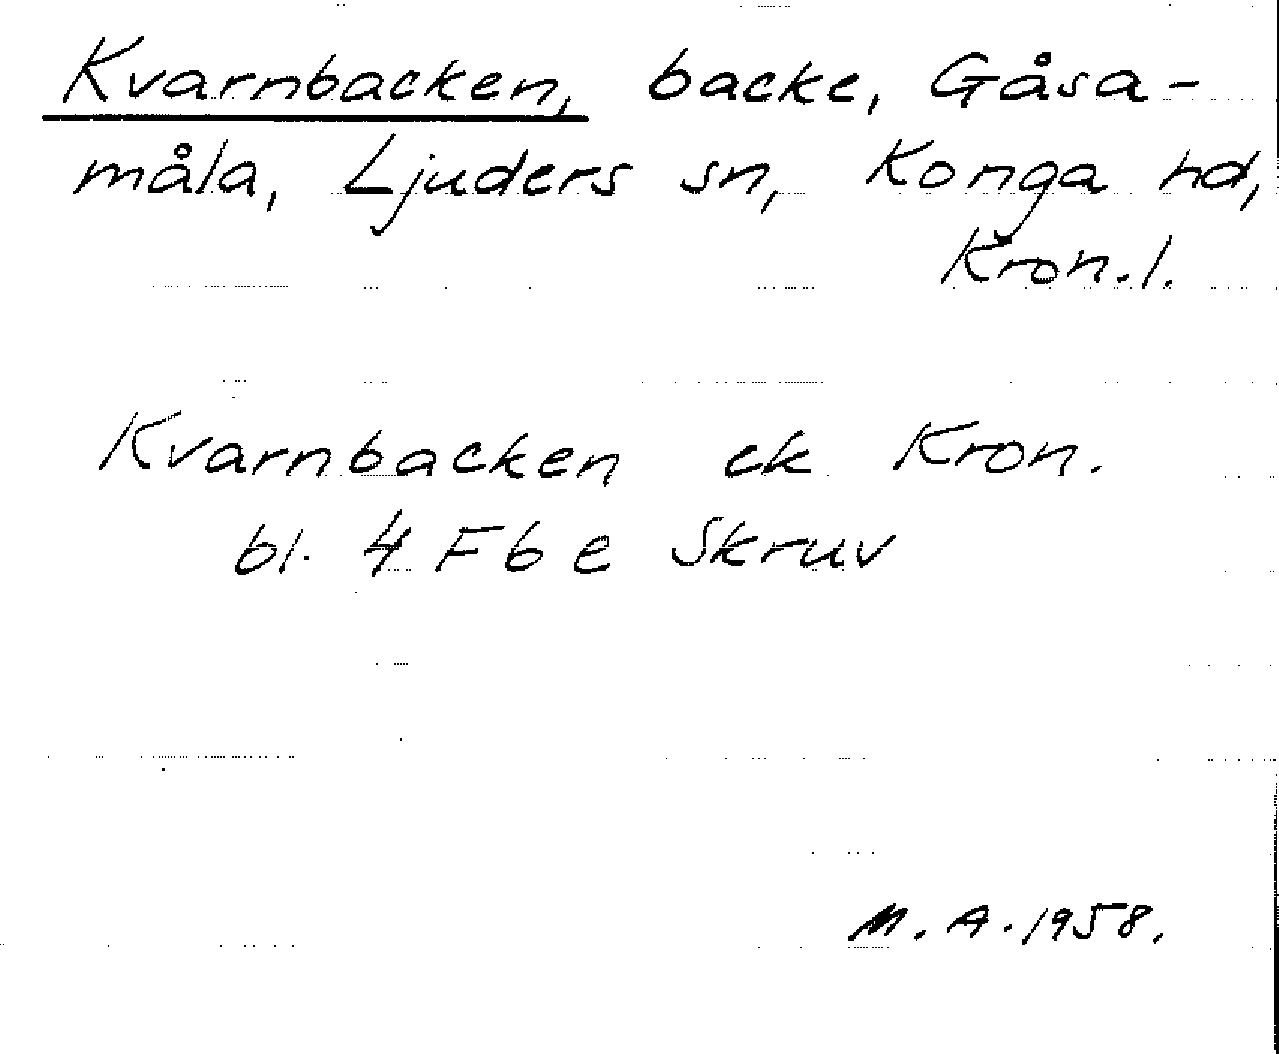 Kvarnbacken, backe, Gåsa-
måla, Ljuders sn, Konga hd,
Kron.l.
Kvarnbacken ek Kron.
bl. 4 F b e Skruv
M.A.1958.